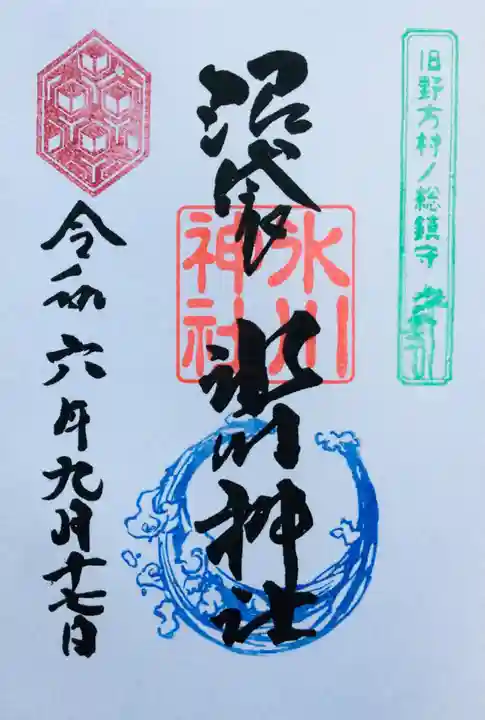 旧野方村ノ総鎮守
沼袋 氷川神社
氷川
神社
令和六年九月十七日